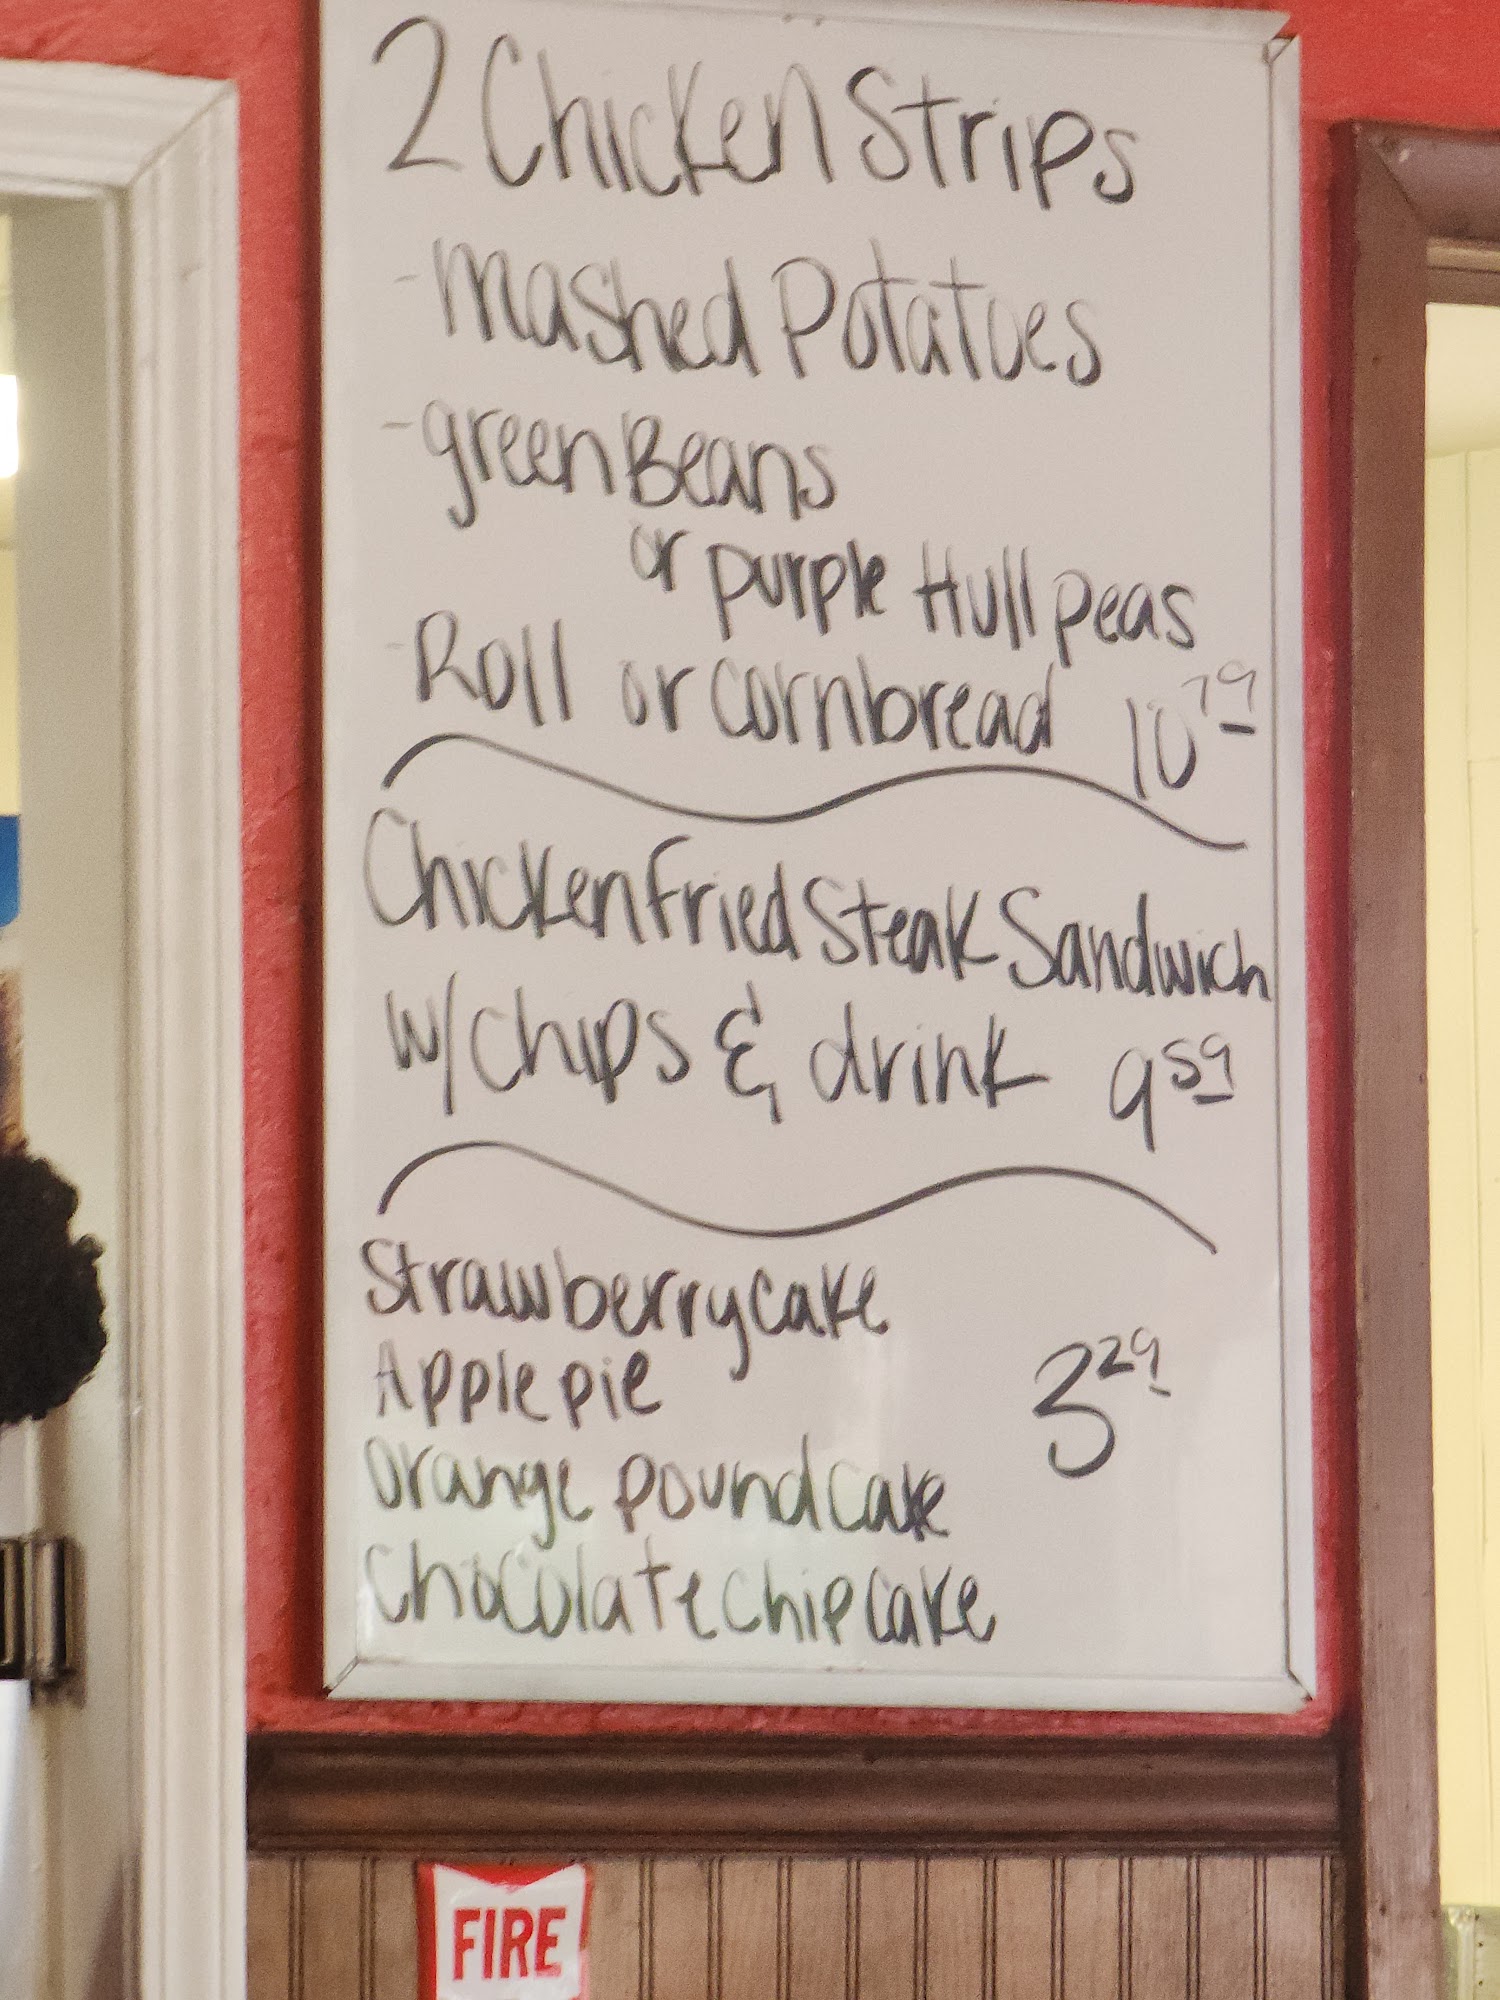 2 Chicken Strips
- mashed Potatoes
- green Beans
or purple Hull peas
- Roll or cornbread 10 79
Chicken Fried Steak Sandwich
w/ chips & drink 9 59
Strawberry cake
Apple pie 3 29
Orange pound cake
Chocolate chip cake
FIRE